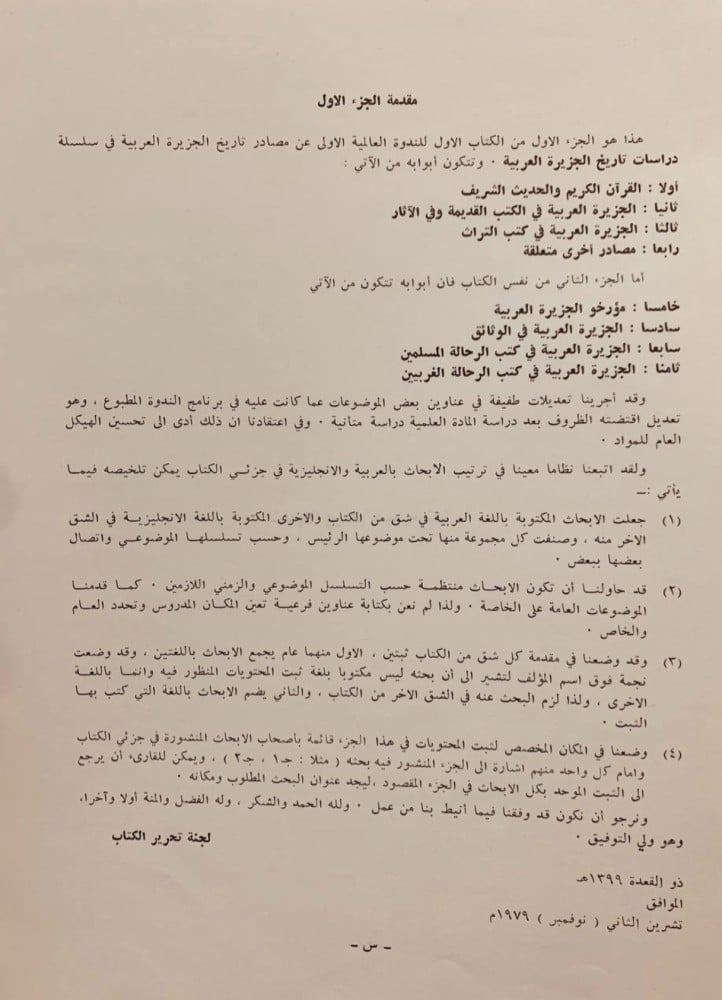 مقدمة الجزء الاول
هذا هو الجزء الاول من الكتاب الاول للندوة العالمية الاولى عن مصادر تاريخ الجزيرة العربية في سلسلة
دراسات تاريخ الجزيرة العربية ٠ وتتكون أبوابه من الآتي :
أولا : القرآن الكريم والحديث الشريف
ثانيا : الجزيرة العربية في الكتب القديمة وفي الآثار
ثالثا : الجزيرة العربية في كتب التراث
رابعا : مصادر أخرى متعلقة
أما الجزء الثاني من نفس الكتاب فان أبوابه تتكون من الآتي
خامسا : مؤرخو الجزيرة العربية
سادسا : الجزيرة العربية في الوثائق
سابعا : الجزيرة العربية في كتب الرحالة المسلمين
ثامنا : الجزيرة العربية في كتب الرحالة الغربيين
وقد أجرينا تعديلات طفيفة في عناوين بعض الموضوعات عما كانت عليه في برنامج الندوة المطبوع ، وهو
تعديل اقتضته الظروف بعد دراسة المادة العلمية دراسة متأنية ٠ وفي اعتقادنا ان ذلك أدى الى تحسين الهيكل
العام للمواد ٠
ولقد اتبعنا نظاما معينا في ترتيب الابحاث بالعربية والانجليزية في جزئي الكتاب يمكن تلخيصه فيما
يأتي :ـ
(١) جعلت الابحاث المكتوبة باللغة العربية في شق من الكتاب والاخرى المكتوبة باللغة الانجليزية في الشق
الاخر منه ، وصنفت كل مجموعة منها تحت موضوعها الرئيس ، وحسب تسلسلها الموضوعي واتصال
بعضها ببعض ٠
(٢) قد حاولنا أن تكون الابحاث منتظمة حسب التسلسل الموضوعي والزمني اللازمين ٠ كما قدمنا
الموضوعات العامة على الخاصة ٠ ولذا لم نعن بكتابة عناوين فرعية تعين المكان المدروس وتحدد العام
والخاص ٠
(٣) وقد وضعنا في مقدمة كل شق من الكتاب ثبتين ، الاول منهما عام يجمع الابحاث باللغتين ، وقد وضعت
نجمة فوق اسم المؤلف لتشير الى أن بحثه ليس مكتوبا بلغة ثبت المحتويات المنظور فيه وانما باللغة
الاخرى ، ولذا لزم البحث عنه في الشق الاخر من الكتاب ، والثاني يضم الابحاث باللغة التي كتب بها
الثبت ٠
(٤) وضعنا في المكان المخصص لثبت المحتويات في هذا الجزء قائمة بأصحاب الابحاث المنشورة في جزئي الكتاب
وامام كل واحد منهم اشارة الى الجزء المنشور فيه بحثه ( مثلا : جـ١ ، جـ٢ ) ، ويمكن للقارىء أن يرجع
الى الثبت الموحد بكل الابحاث في الجزء المقصود ،ليجد عنوان البحث المطلوب ومكانه ٠
ونرجو أن نكون قد وفقنا فيما أنيط بنا من عمل ٠ ولله الحمد والشكر ، وله الفضل والمنة أولا وآخرا،
وهو ولي التوفيق ٠
لجنة تحرير الكتاب
ذو القعدة ١٣٩٩هـ
الموافق
تشرين الثاني ( نوفمبر ) ١٩٧٩م
- س -